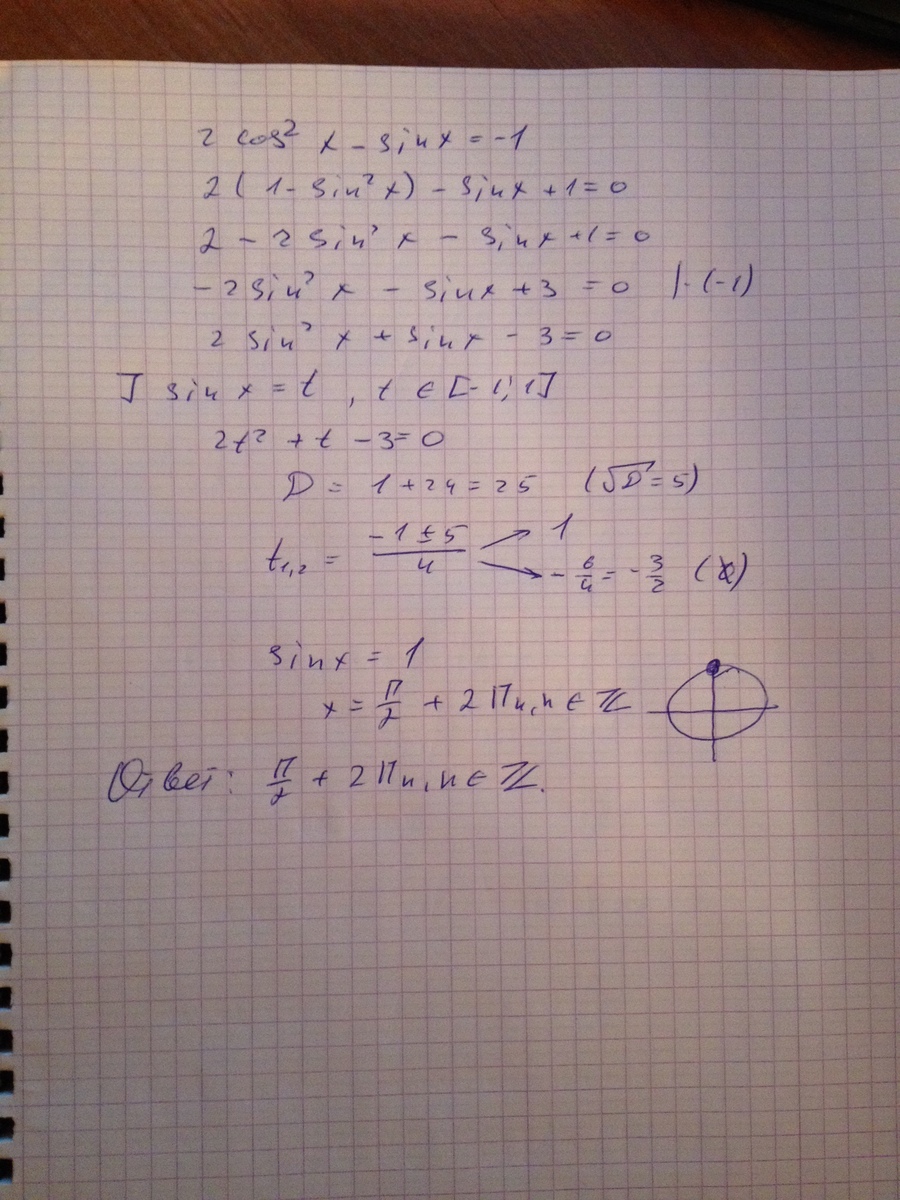 2 cos² x - sin x = -1
2(1 - sin² x) - sin x + 1 = 0
2 - 2 sin² x - sin x + 1 = 0
-2 sin² x - sin x + 3 = 0 |·(-1)
2 sin² x + sin x - 3 = 0
] sin x = t , t ∈ [-1; 1]
2t² + t - 3 = 0
D = 1 + 24 = 25 (√D = 5)
t₁,₂ = (-1 ± 5)/4 → 1 → -6/4 = -3/2
sin x = 1
x = π/2 + 2πn, n ∈ ℤ
Ответ: π/2 + 2πn, n ∈ ℤ.